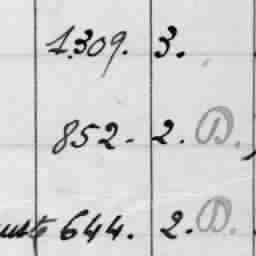 1.309. 3.
852. 2. D.
644. 2. D.